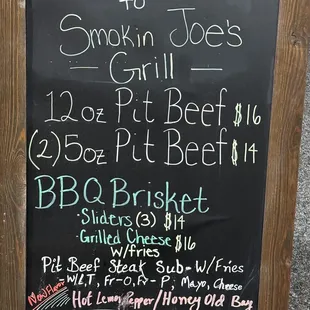 to
Smokin Joe's
- Grill -
12oz Pit Beef $16
(2) 5oz Pit Beef $14
BBQ Brisket
· Sliders (3) $14
· Grilled Cheese $16
w/fries
Pit Beef Steak Sub - W/Fries
- W/LT, Fr-O, Fr-P, Mayo, Cheese
New Flavor
Hot Lemon Pepper / Honey Old Bay